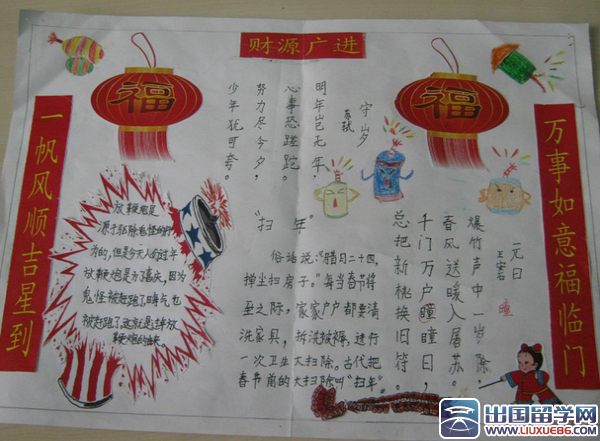 财源广进
一帆风顺吉星到
万事如意福临门
福
福
守岁
苏轼
明年岂无年,
心事恐蹉跎。
努力尽今夕,
少年犹可夸。
放鞭炮是
源于驱除鬼怪的行
为的,但是今天人们过年
放鞭炮是为了喜庆,因为
鬼怪被赶跑了,晦气也
被赶跑了,这就是过年放
鞭炮的由来
"扫年"
俗话说:"腊月二十四,
掸尘扫房子。"每当春节将
至之际,家家户户都要清
洗家具,拆洗被褥,进行
一次卫生大扫除。古代把
春节前的大扫除叫"扫年"。
元日
王安石
瞳
爆竹声中一岁除,
春风送暖入屠苏。
千门万户瞳瞳日,
总把新桃换旧符。
出国留学网
WWW.LIUXUE86.COM